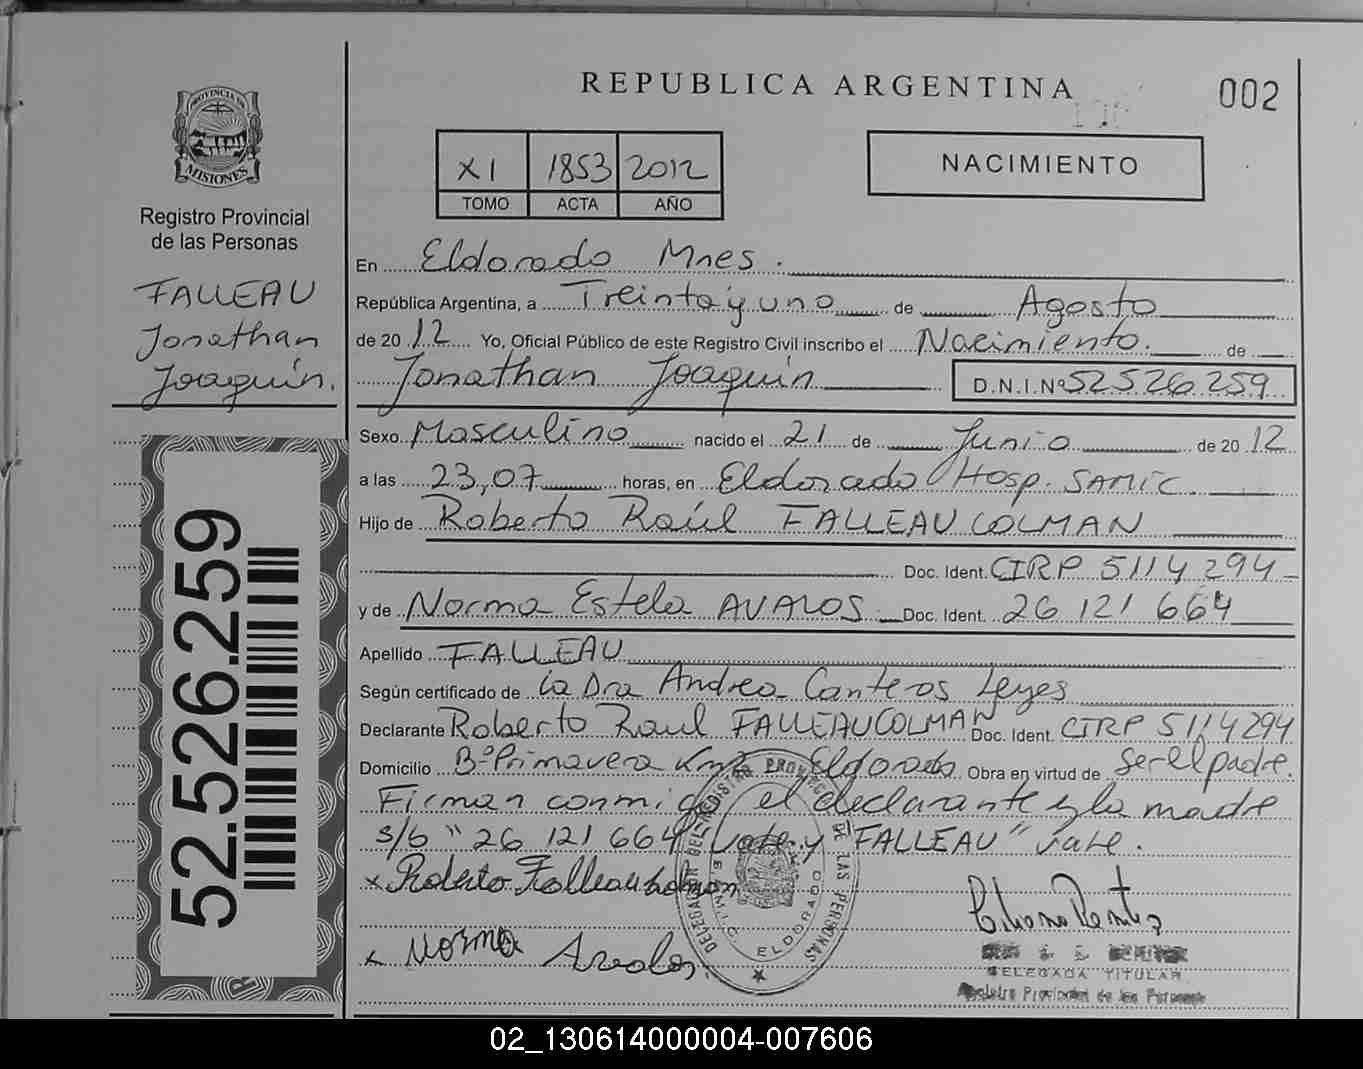 REPUBLICA ARGENTINA
002
PROVINCIA DE
MISIONES
Registro Provincial
de las Personas
FALLEAU
Jonathan
Joaquín.
52.526.259
XI 1853 2012
TOMO ACTA AÑO
NACIMIENTO
En Eldorado Mnes.
República Argentina, a Treinta y uno de Agosto
de 2012 Yo, Oficial Público de este Registro Civil inscribo el Nacimiento. de
Jonathan Joaquín D.N.I.Nº 52526.259
Sexo Masculino nacido el 21 de Junio de 2012
a las 23,07 horas, en Eldorado Hosp. SAMIC.
Hijo de Roberto Raúl FALLEAU COLMAN
Doc. Ident. CIRP 5114294
y de Norma Estela AVALOS Doc. Ident. 26 121 664
Apellido FALLEAU
Según certificado de la Dra Andrea Canteros Leyes
Declarante Roberto Raul FALLEAU COLMAN Doc. Ident. CIRP 5114294
Domicilio Bº Primavera Eldorado Obra en virtud de Ser el padre.
Firman conmigo el declarante y la madre
s/b "26 121 664" Vale y "FALLEAU" Vale.
x Roberto Falleau Colman
x Norma Avalos
ELDORADO
DELEGADA TITULAR
Registro Provincial de las Personas
02_130614000004-007606